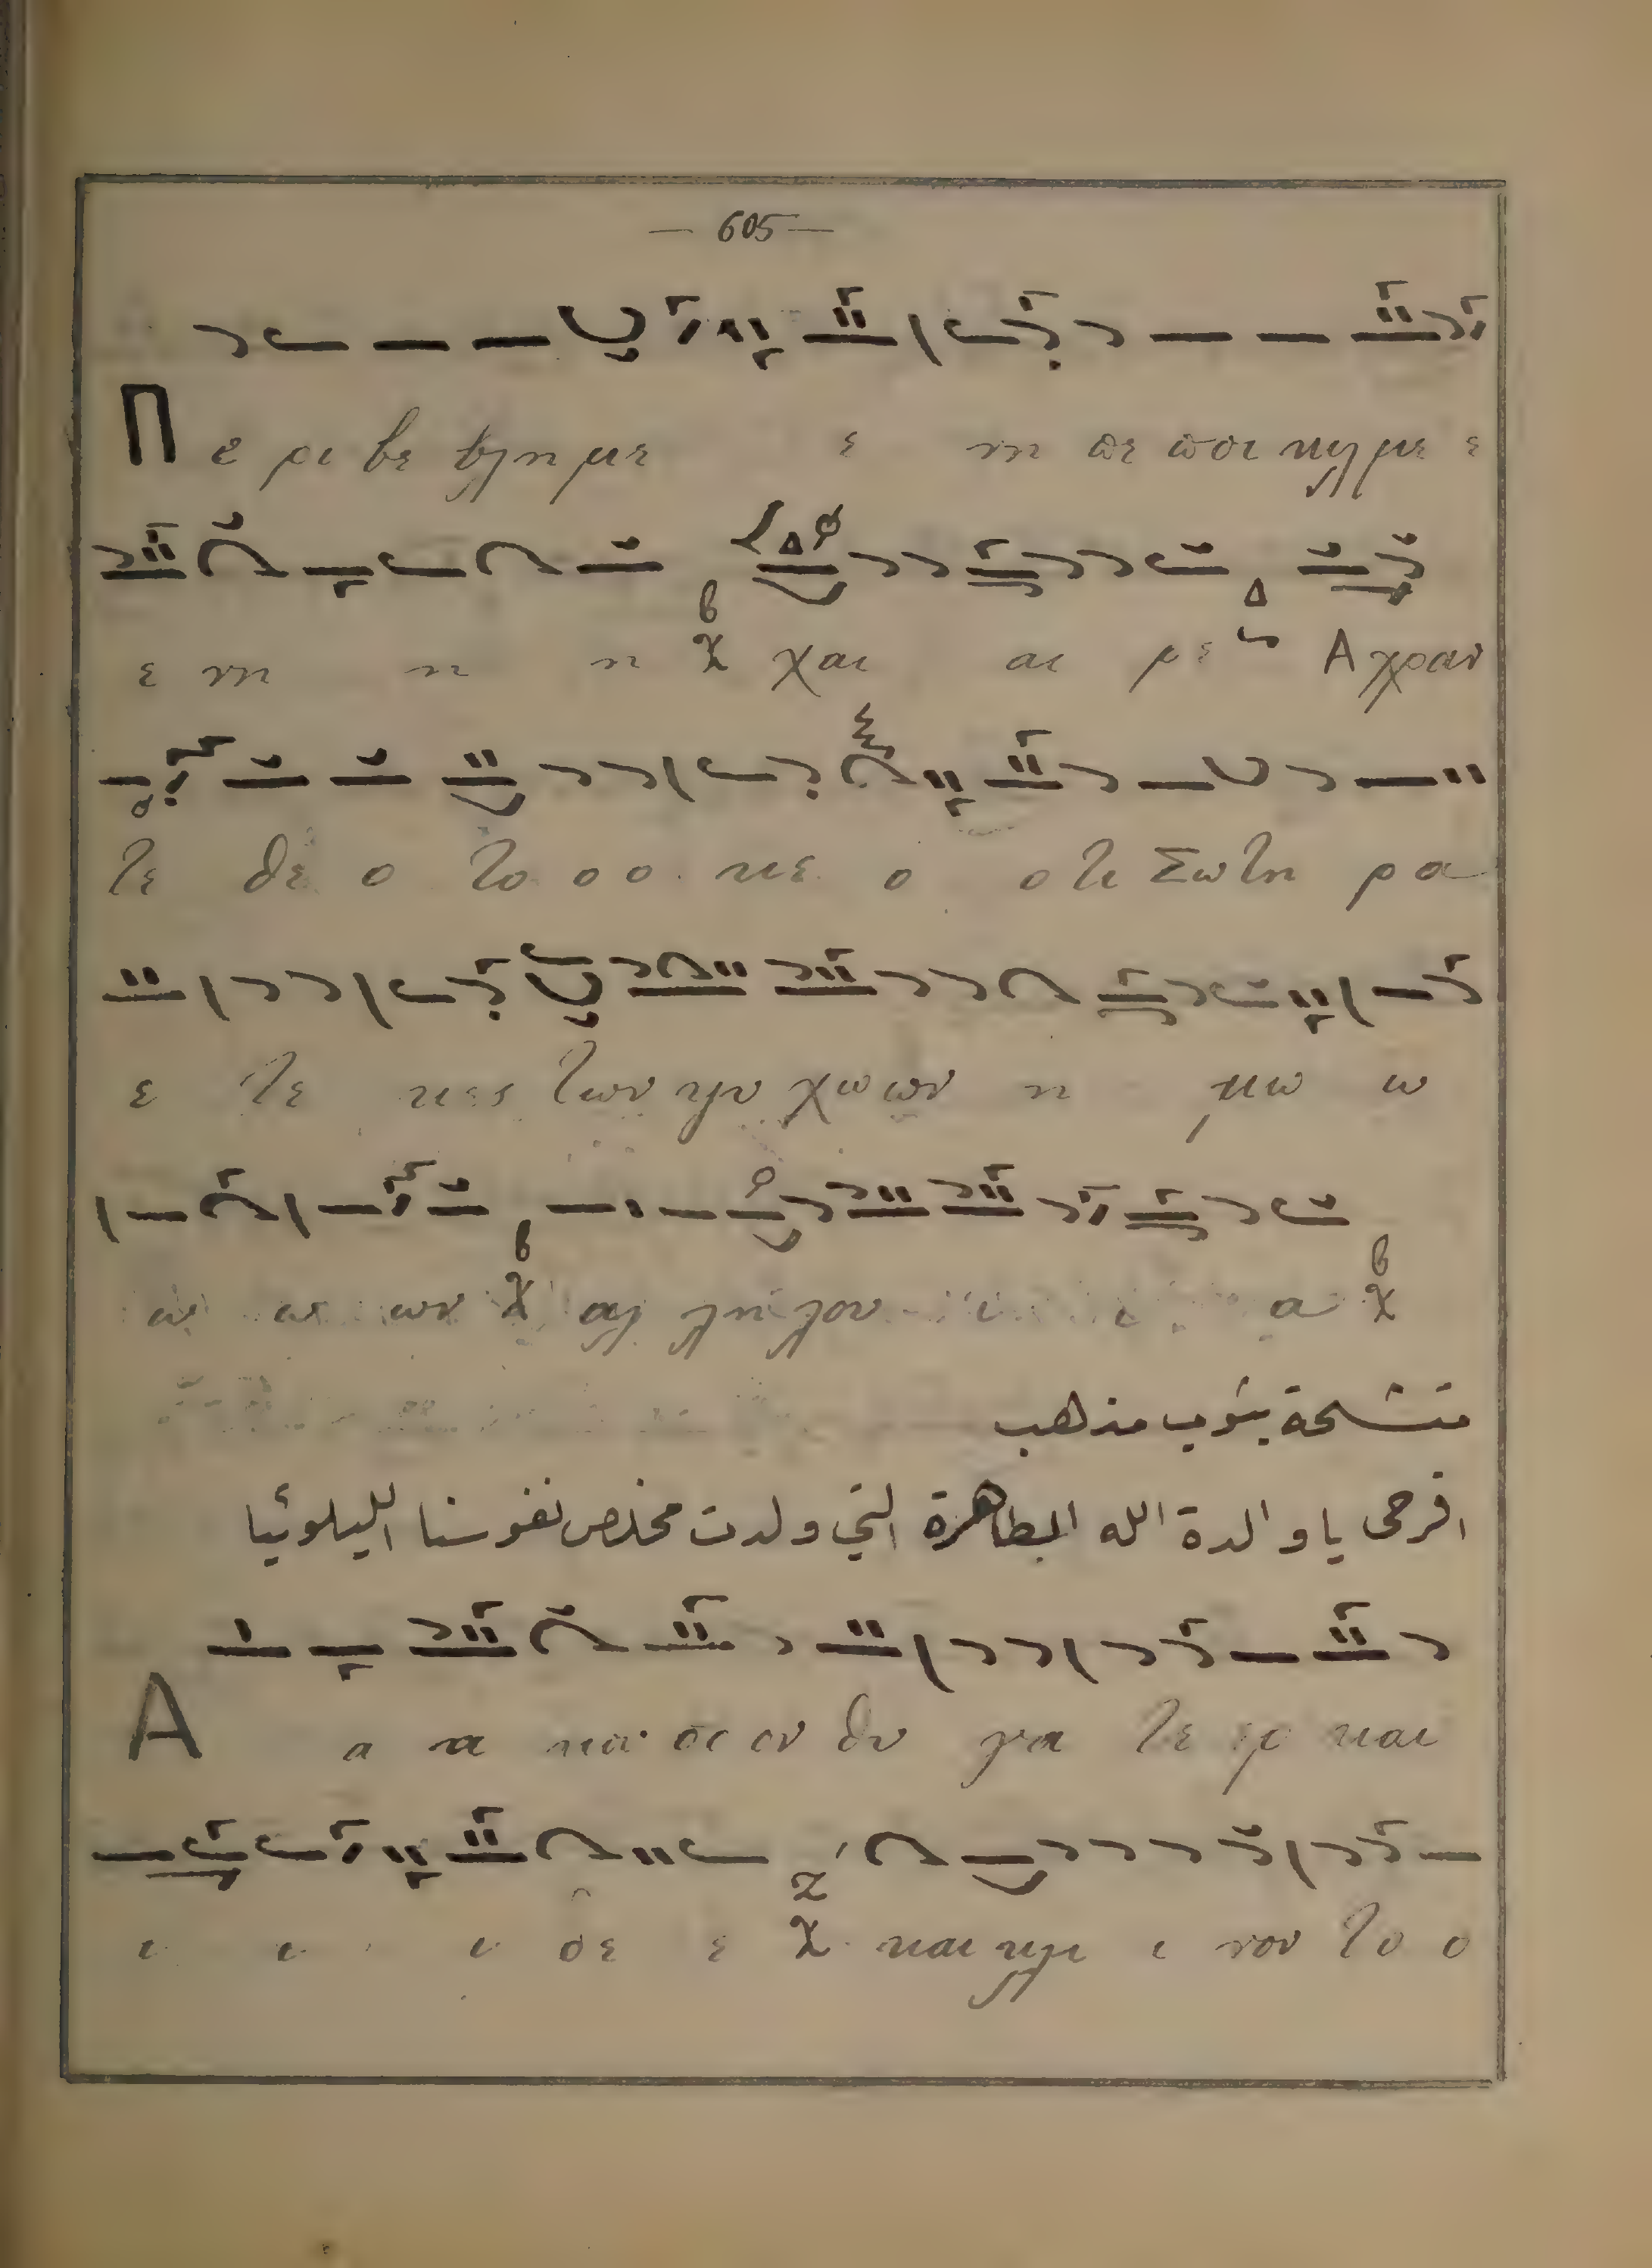 — 605 —
Π ε ρι βε βλη με ε νη πε ποι κιλ με ε
ε νη η η χαι αι ρε Αχραν
τε θε ο το ο ο κε ο οτι Σωτη ρα
ε τε κες των ψυ χω ων η μω ω
ω ω ων αλ λη λου ι ι α
متشحة بثوب مذهب
افرحى يا والدة الله المطاهرة التي ولدت مخلص نفوسنا الليلوئيا
Α α α κου σον θυ γα τε ερ και
ι ι ι δε ε και κλι ι νον το ο